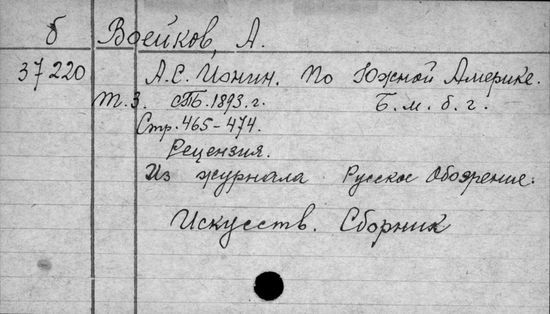 б Воейков, А.
37220 А.С. Ионин. По Южной Америке.
т. 3. СПБ. 1893. г. Б. м. б. г.
Стр. 465-474.
Рецензия.
Из журнала Русское Обозрение.
Искусств. Сборник